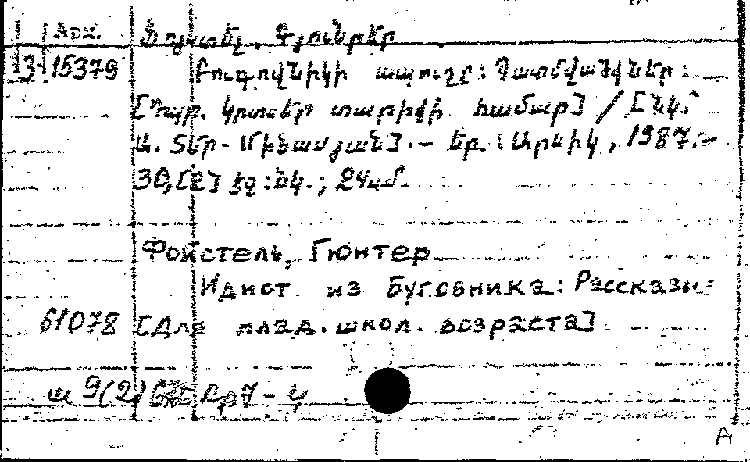 Арх. Ֆոյստել, Գյունտեր
3-15379 Բուգովնիկի ապուշը: Պատմվածքներ:
[Կրտ. դպր. տարիքի համար] / [Նկ.՝
Ա. Տեր-Մինասյան].- Եր.: Արևիկ, 1987.-
30,[2] էջ:նկ.; 24սմ.
Фойстель, Гюнтер
Идиот из Буговника: Рассказы:
61078 [Для млад. школ. возраста]
А